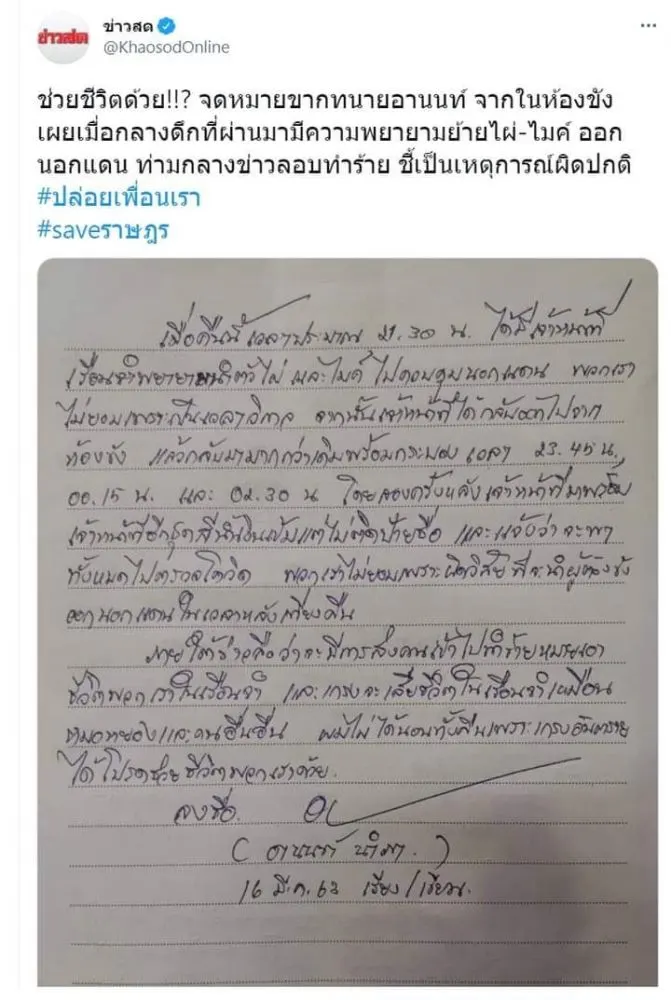 ข่าวสด
ข่าวสด
@KhaosodOnline
ช่วยชีวิตด้วย!!? จดหมายจากทนายอานนท์ จากในห้องขัง
เผยเมื่อกลางดึกที่ผ่านมามีความพยายามย้ายไผ่-ไมค์ ออก
นอกแดน ท่ามกลางข่าวลอบทำร้าย ชี้เป็นเหตุการณ์ผิดปกติ
#ปล่อยเพื่อนเรา
#saveราษฎร
เมื่อคืนนี้เวลาประมาณ 21.30 น. ได้มีเจ้าหน้าที่
เรือนจำพยายามนำตัวไผ่ และไมค์ ไปควบคุมนอกแดน พวกเรา
ไม่ยอมเพราะเป็นเวลาวิกาล จากนั้นเจ้าหน้าที่ได้กลับออกไปจาก
ห้องขัง แล้วกลับมามากกว่าเดิมพร้อมกระบอง เวลา 23.45 น.,
00.15 น. และ 02.30 น โดยสองครั้งหลังเจ้าหน้าที่มาพร้อม
เจ้าหน้าที่อีกชุดสีน้ำเงินเข้มแต่ไม่ติดป้ายชื่อ และแจ้งว่าจะพา
ทั้งหมดไปตรวจโควิด พวกเราไม่ยอมเพราะผิดวิสัยที่จะนำผู้ต้องขัง
ออกนอกแดนในเวลาหลังเที่ยงคืน
ภายใต้ข่าวลือว่าจะมีการส่งคนเข้าไปทำร้ายหมายเอา
ชีวิตพวกเราในเรือนจำ และเกรงจะเสียชีวิตในเรือนจำเหมือน
หมอหยองและคนอื่นอื่น ผมไม่ได้นอนทั้งคืนเพราะเกรงอันตราย
ได้โปรดช่วยชีวิตพวกเราด้วย.
ลงชื่อ.
( อานนท์ นำภา. )
16 มี.ค. 63 เรียง/เขียน.